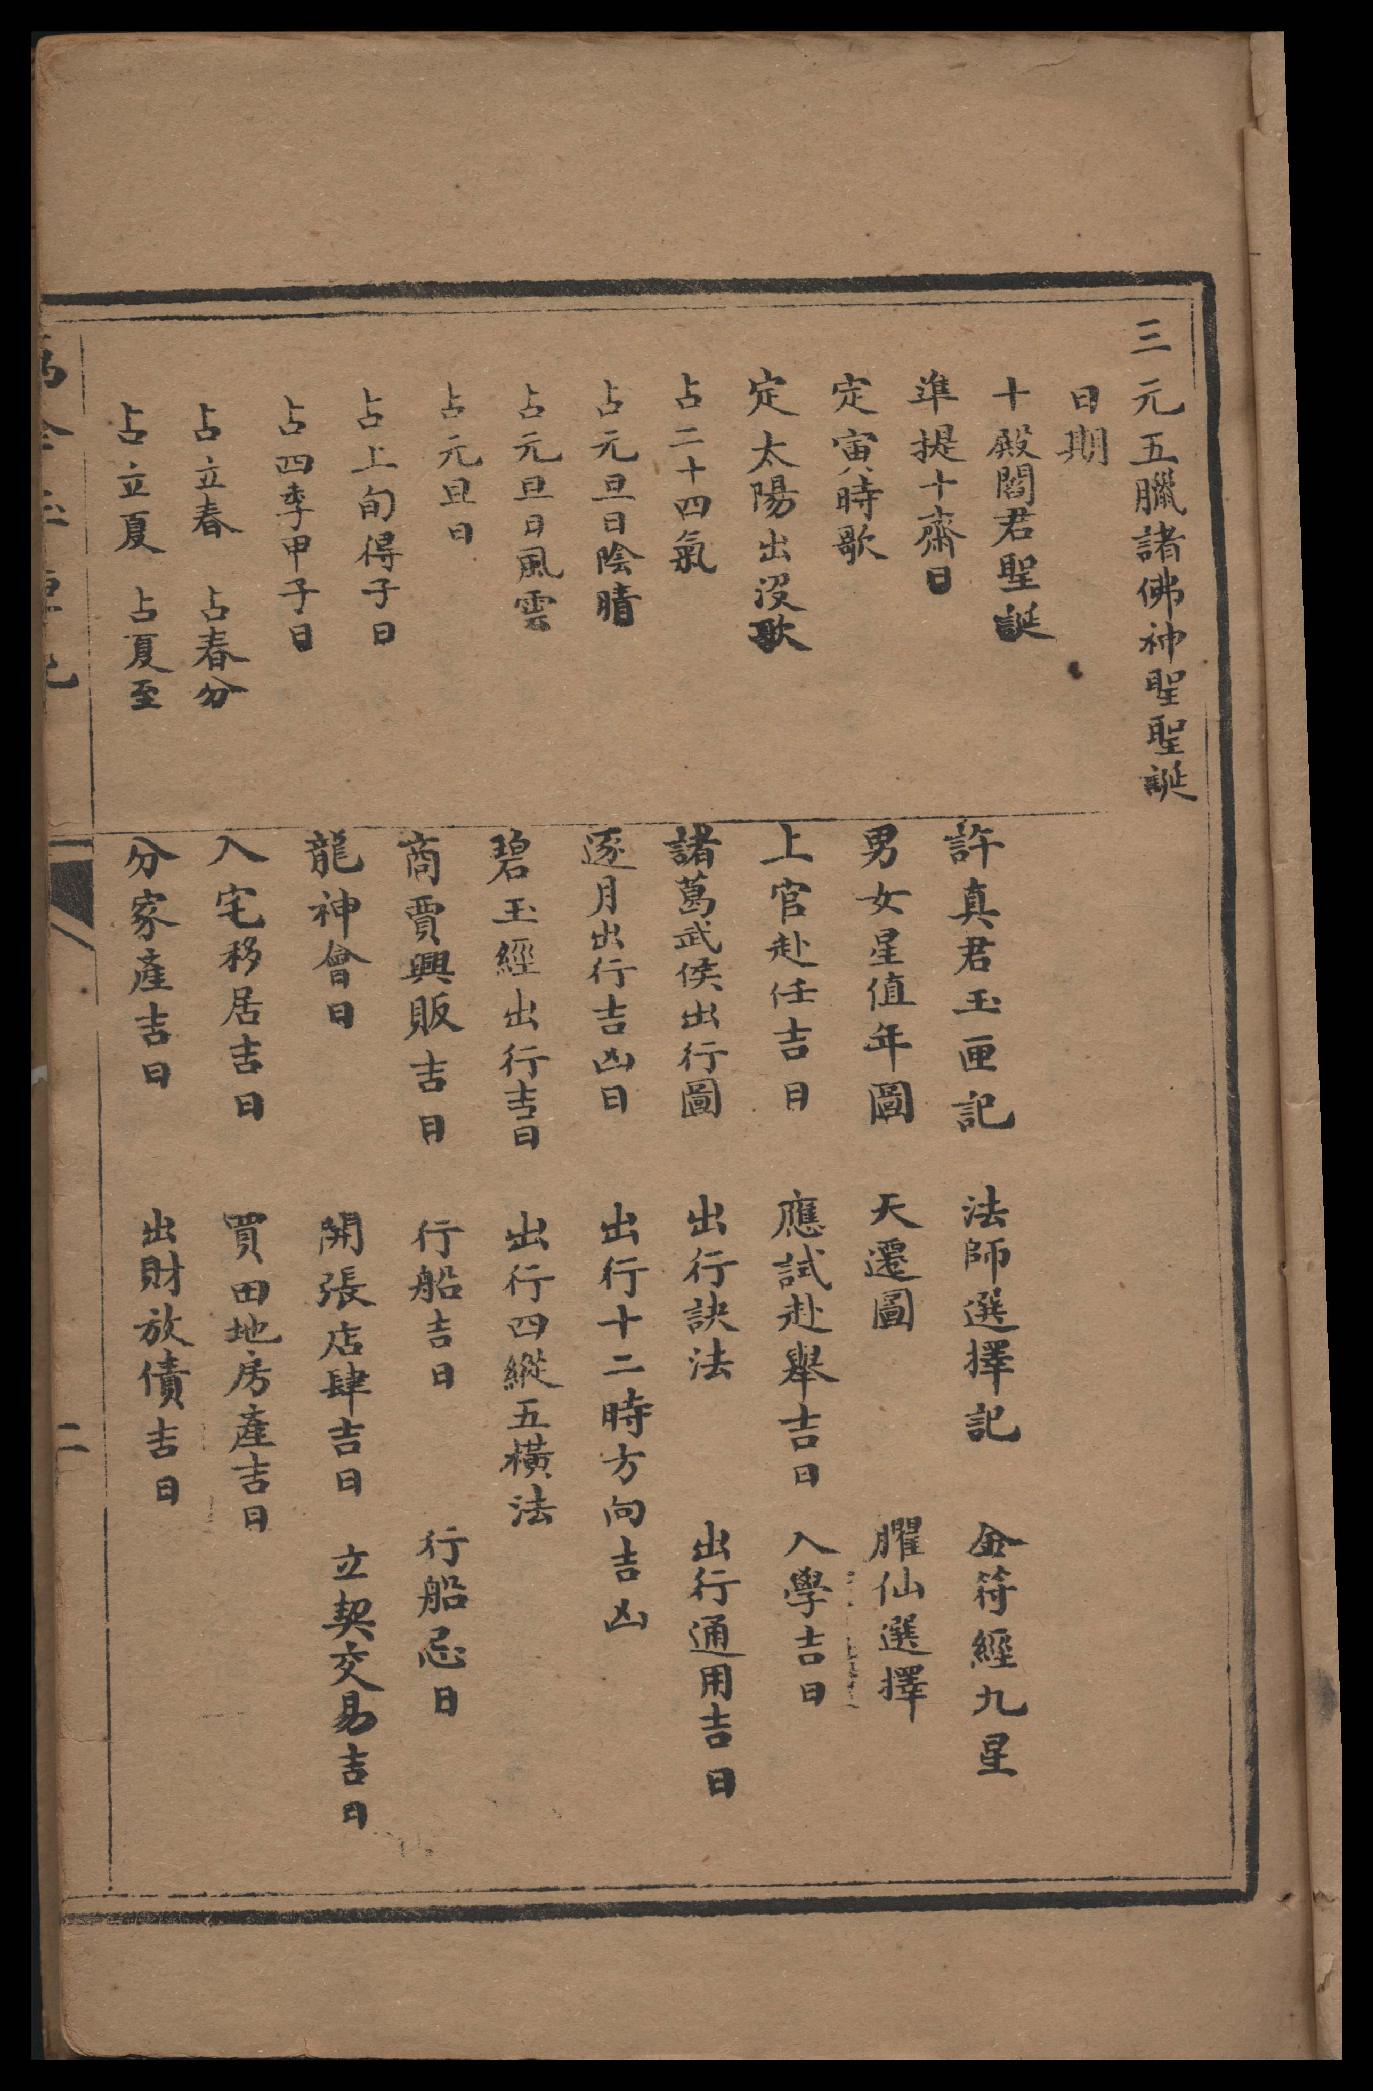 三元五臘諸佛神聖聖誕
日期
十殿閻君聖誕
準提十齋日
定寅時歌
定太陽出没歌
占二十四氣
占元旦日陰晴
占元旦日風雲
占元旦日
占上旬得子日
占四季甲子日
占立春 占春分
占立夏 占夏至
許真君玉匣記 法師選擇記 金符經九星
男女星值年圖 天遷圖 臞仙選擇
上官赴任吉日 應試赴舉吉日 入學吉日
諸葛武侯出行圖 出行訣法 出行通用吉日
逐月出行吉凶日 出行十二時方向吉凶
碧玉經出行吉日 出行四縱五橫法
商賈興販吉日 行船吉日 行船忌日
龍神會日 開張店肆吉日 立契交易吉日
入宅移居吉日 買田地房產吉日
分家產吉日 出財放債吉日
二